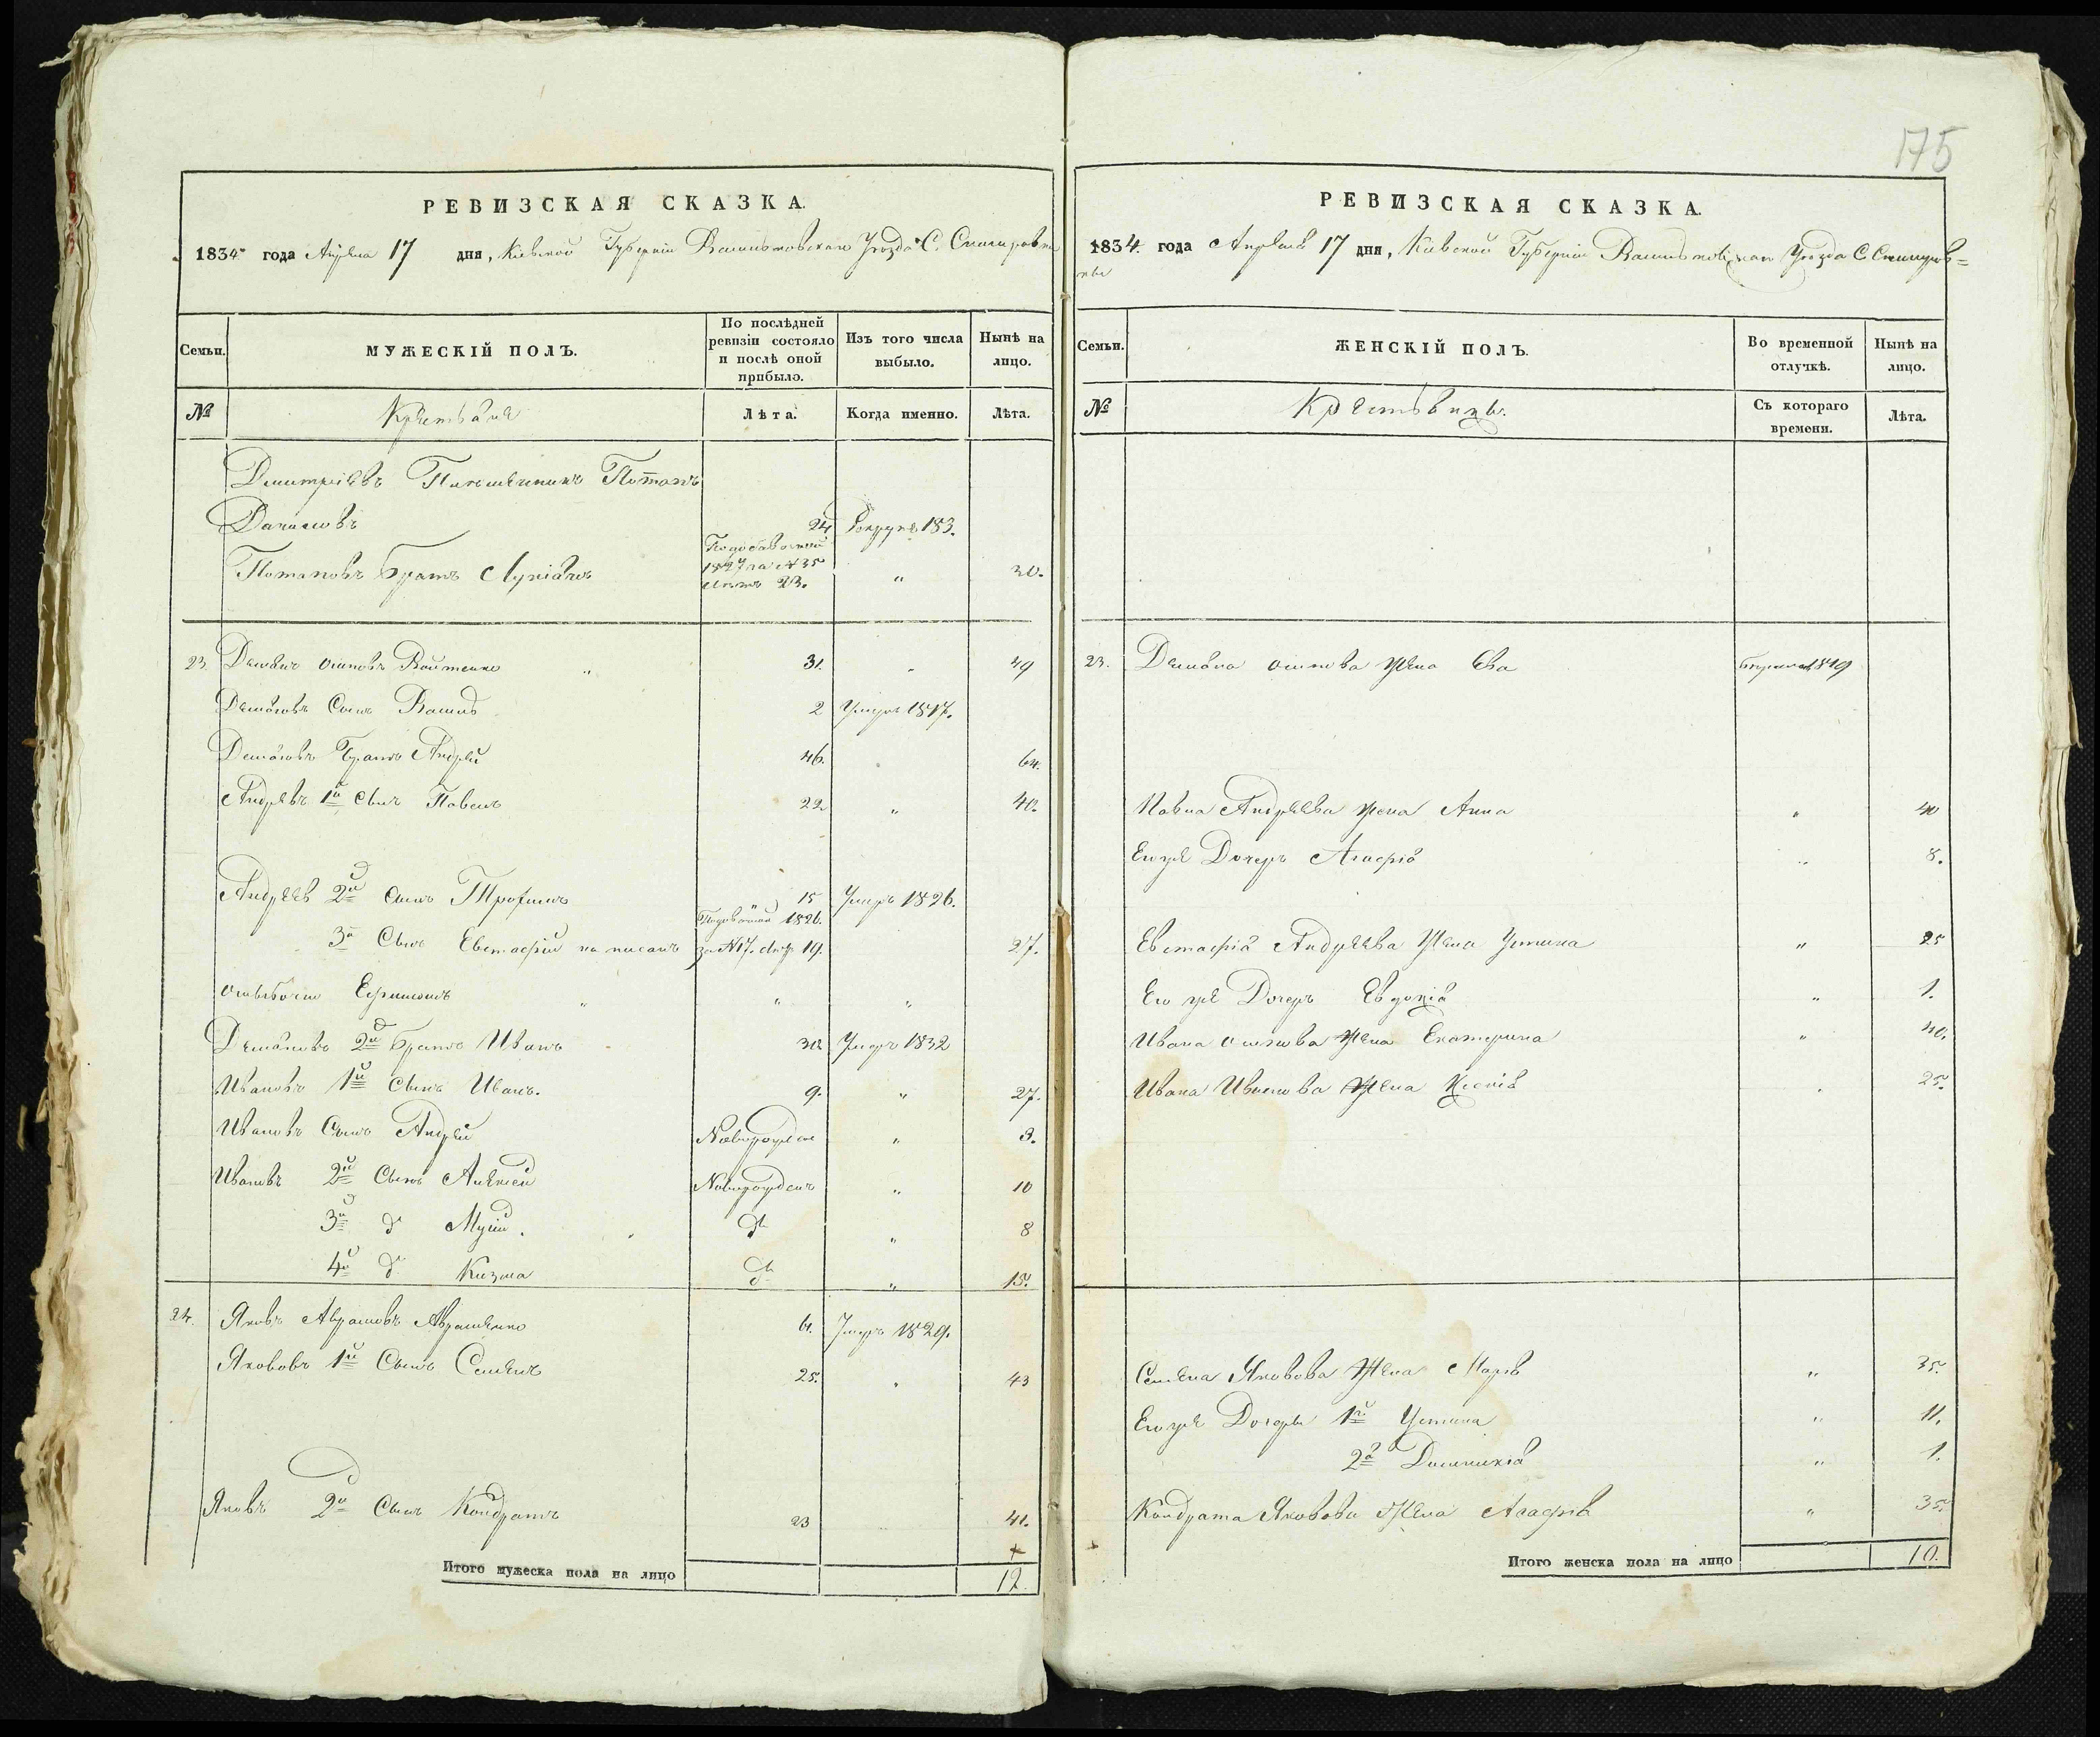 175
РЕВИЗСКАЯ СКАЗКА.
1834 года Апреля 17 дня, Кіевской Губерніи Васильковскаго Уѣзда С. Снигировки
Семьи.
МУЖЕСКІЙ ПОЛЪ.
По послѣдней ревизіи состояло и послѣ оной прибыло.
Изъ того числа выбыло.
Нынѣ на лицо.
№
Крестьяне
Лѣта.
Когда именно.
Лѣта.
Дмитріевъ Потапъ
Даниловъ 24 183.
Потаповъ братъ Лукіянъ 1827 за N 35 лѣтъ 23. " 30.
23. Демьянъ Осиповъ Войтенко " 31. " 49
Демьяновъ Сынъ Василь 2 Умеръ 1817.
Демьяновъ Братъ Андрей 46. 64.
Андреевъ 1й Сынъ Павелъ 22 " 40.
Андреевъ 2й Сынъ Трофимъ 15 Умеръ 1826.
3й Сынъ Евстафій написанъ 1826. за N 17. 19. 27.
ошибочно Ефимомъ " " "
Демьяновъ 2й братъ Иванъ 30 Умеръ 1832
Ивановъ 1й Сынъ Иванъ. 9. " 27.
Ивановъ Сынъ Андрей Новорожден " 3.
Ивановъ 2й Сынъ Алексей Новорожденъ " 10
3й д Мусій. д " 8
4й д Кизма д " 15.
24. Яковъ Аврамовъ Авраменко 61. Умеръ 1829.
Якововъ 1й Сынъ Семенъ 25. " 43
Яковъ 2й Сынъ Кондратъ 23 41.
Итого мужеска пола на лицо 12.
РЕВИЗСКАЯ СКАЗКА.
1834. года Апреля 17 дня, Кіевской Губерніи Васильковскаго Уѣзда С. Снигиров=
ки
Семьи.
ЖЕНСКІЙ ПОЛЪ.
Во временной отлучкѣ.
Нынѣ на лицо.
№
Крестьянки.
Съ котораго времени.
Лѣта.
23. Демьяна Осипова жена Ева 1819
Павла Андреева жена Анна " 40
Его же Дочерь Агафія " 8.
Евстафія Андреева Жена Устина " 25
Его же Дочерь Евдокія " 1.
Ивана Осипова Жена Екатерина " 40.
Ивана Иванова Жена Ксенія " 25.
Семена Яковова Жена Марья " 35.
Его же Дочери 1я Устина " 11.
2я Домникія " 1.
Кондрата Яковова Жена Агафія " 35.
Итого женска пола на лицо 10.